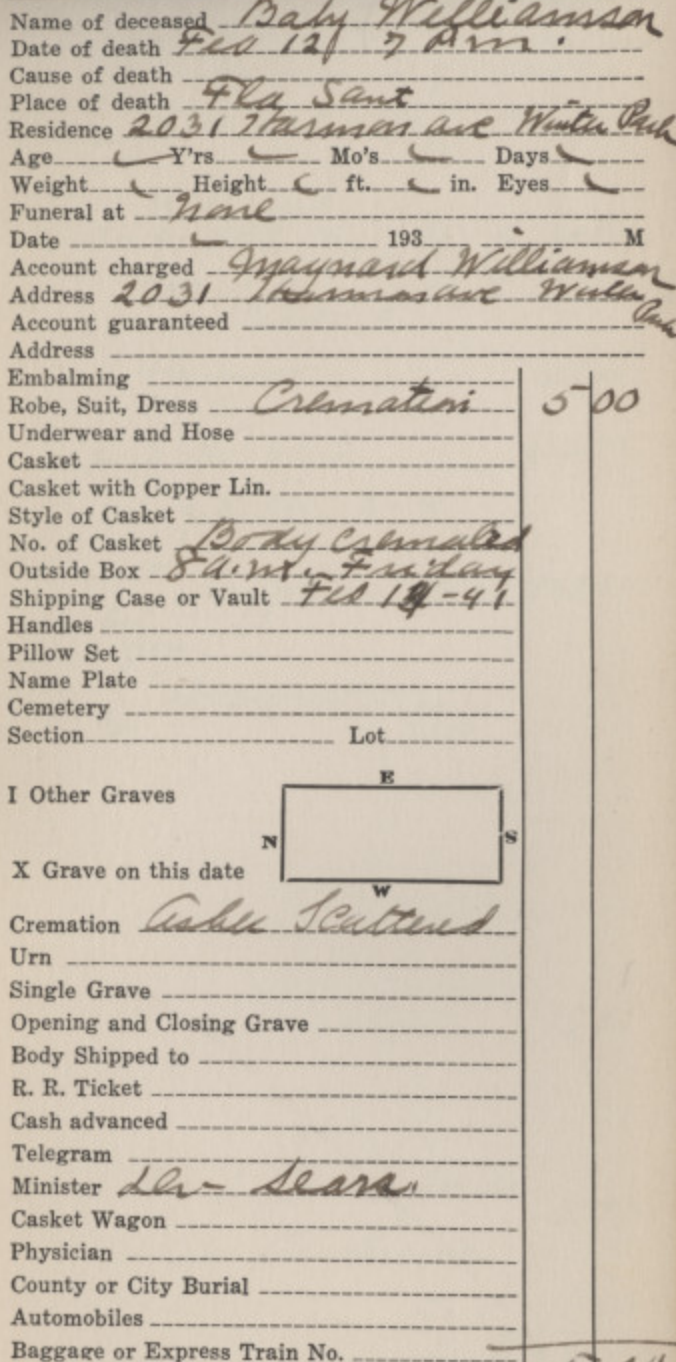 Name of deceased Baby Williamson
Date of death Feb 12 7 P.m.
Cause of death
Place of death Fla Sant
Residence 2031 Harmon ave Winter Park
Age Y'rs Mo's Days
Weight Height ft. in. Eyes
Funeral at None
Date 193 M
Account charged Maynard Williamson
Address 2031 Harmon ave Winter Park
Account guaranteed
Address
Embalming
Robe, Suit, Dress Cremation 5 00
Underwear and Hose
Casket
Casket with Copper Lin.
Style of Casket
No. of Casket Body cremated
Outside Box 8 a.m. Friday
Shipping Case or Vault Feb 14-41
Handles
Pillow Set
Name Plate
Cemetery
Section Lot
E
I Other Graves
N S
X Grave on this date
W
Cremation ashes Scattered
Urn
Single Grave
Opening and Closing Grave
Body Shipped to
R. R. Ticket
Cash advanced
Telegram
Minister Sears
Casket Wagon
Physician
County or City Burial
Automobiles
Baggage or Express Train No.